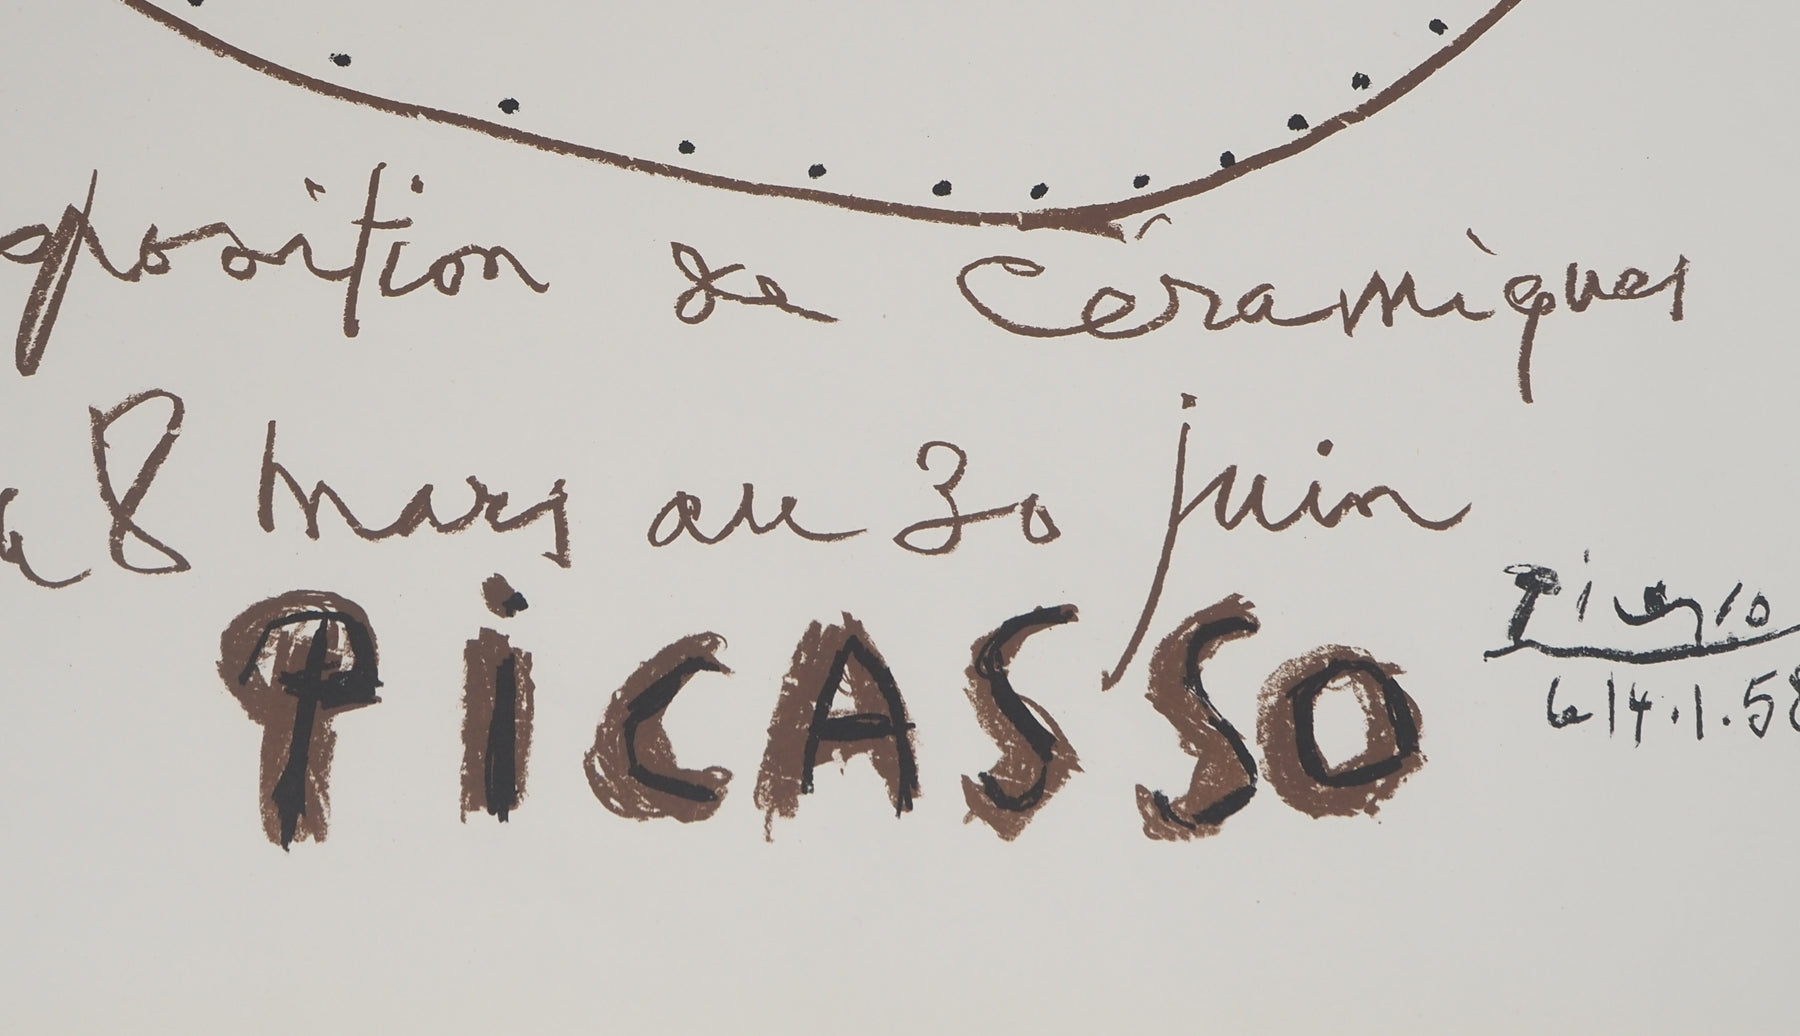 xposition de Céramiques
u 8 mars au 30 juin
PiCASSO
Picasso
le 14.1.58